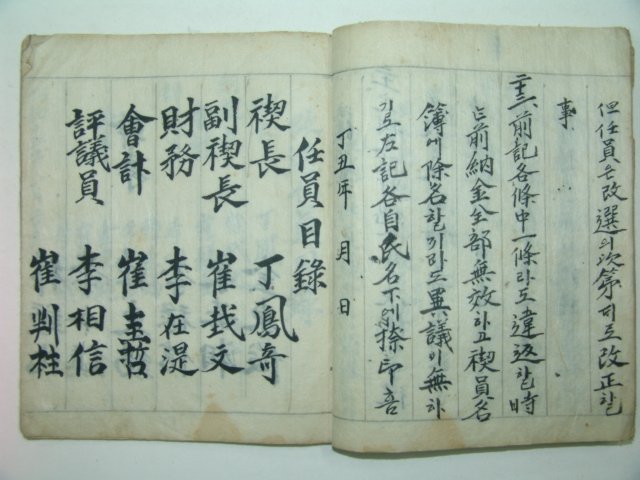 但任員은改選의次第대로改正할
事
前記各條中一條라도違返할時
는前納金全部無效하고禊員名
簿에除名할끼라도異議이無하
기로左記各自氏名下에捺印喜
丁丑年 月 日
任員目錄
禊長 丁鳳奇
副禊長 崔栽文
財務 李在湜
會計 崔圭哲
評議員 李相信
崔判柱